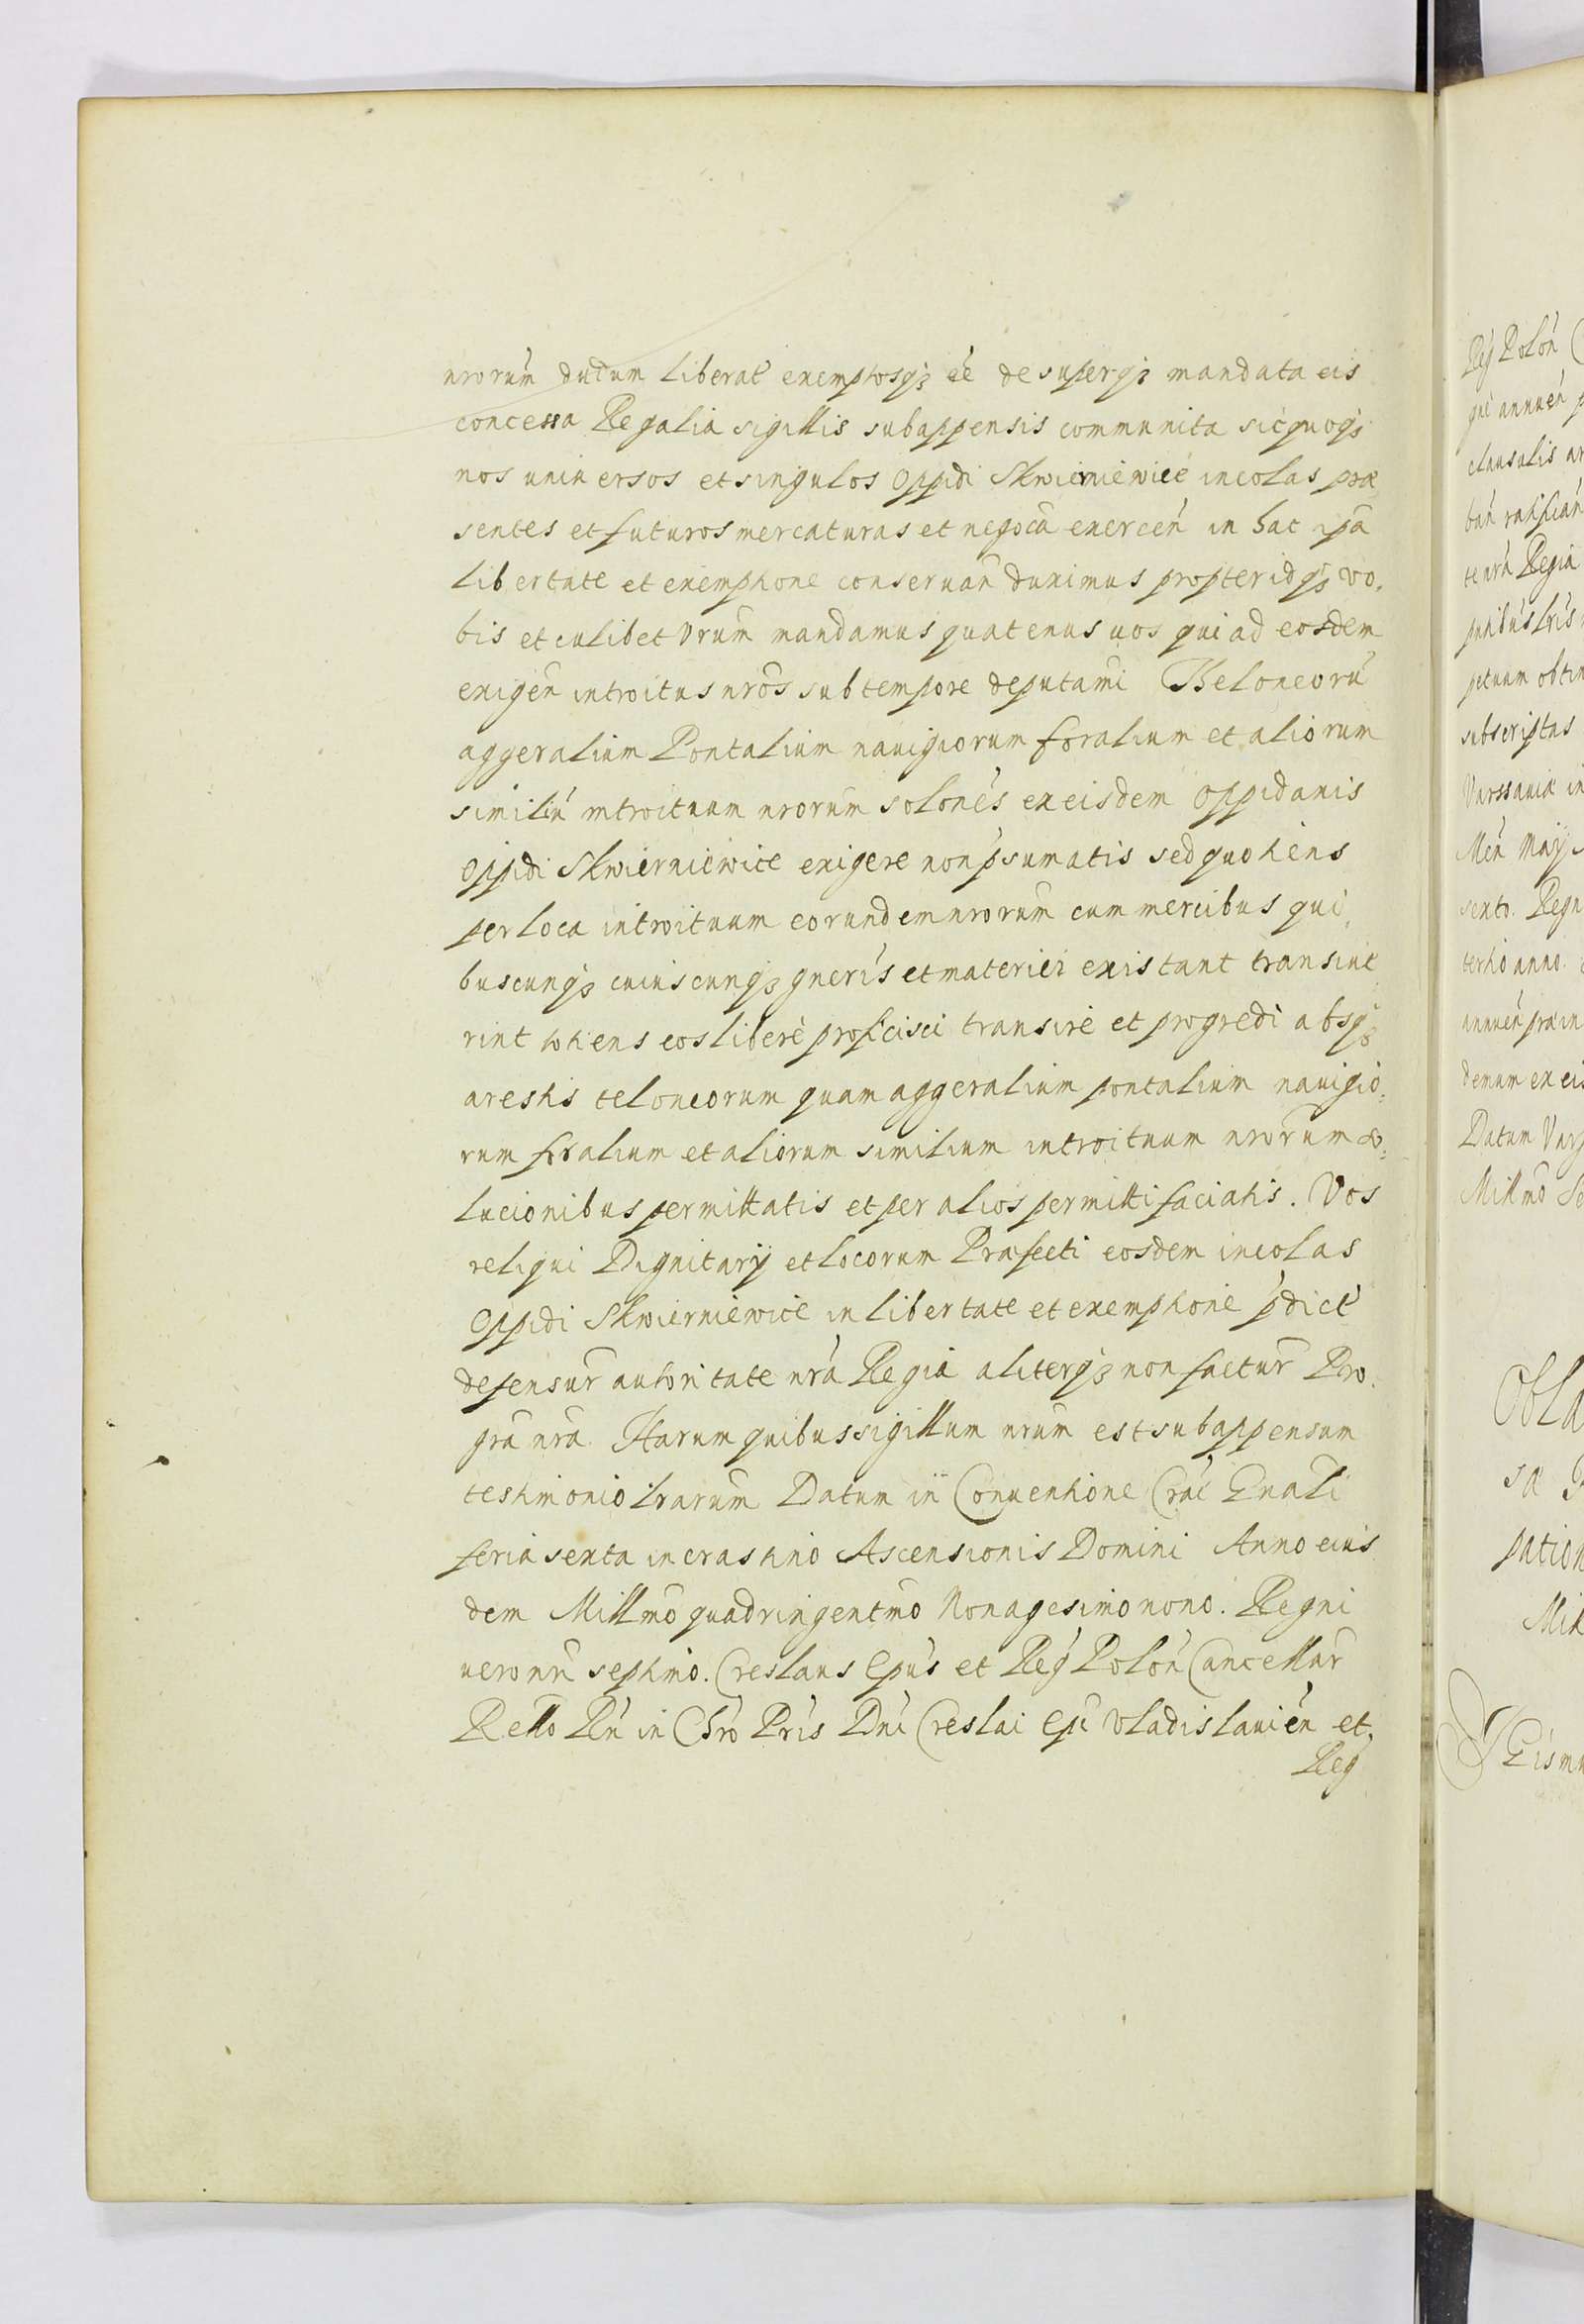 nrorum dudum liberat exemptosq₃ ee desuperq₃ mandata eis
concessa Regalia sigillis subappensis communita sicquoq₃
nos universos et singulos oppidi Skwierniewice incolas præ
sentes et futuros mercaturas et negocia exercen in hac ipsa
libertate et exemptione conseruan duximus propteridq₃ vo,
bis et cuilibet vrum mandamus quatenus uos qui ad eosdem
exigen introitus nros sub tempore deputami Theloneoru
aggeralium Pontalium nauigiorum foralium et aliorum
similiu introituum nrorum solones ex eisdem oppidanis
oppidi Skwierniewice exigere non psumatis sed quotiens
per loca introituum eorundem nrorum cum mercibus qui,
buscunq₃ cuiuscunq₃ gneris et materiei existant transiue
rint totiens eos libere proficisci transire et progredi absq₃
arestis teloneorum quam aggeralium pontalium nauigio,
rum foralium et aliorum similium introituum nrorum so,
lucionibus permittatis et per alios permitti faciatis. Vos
reliqui Dignitarij et locorum Præfecti eosdem incolas
oppidi Skwierniewice in libertate et exemptione pdict
defensur autoritate nra Regia aliterq₃ non factur Pro,
gra nra. Harum quibus sigillum nrum est subappensum
testimonio lrarum Datum in Conuentione Crac Gnali
feria sexta in crastino Ascensionis Domini Anno eius
dem Millmo quadringentmo Nonagesimo nono. Regni
uero nri septimo. Creslaus Epus et Reg Polon Cancellar
Retto Rn in Chro Pris Dni Creslai Epi Vladislauien et
Reg